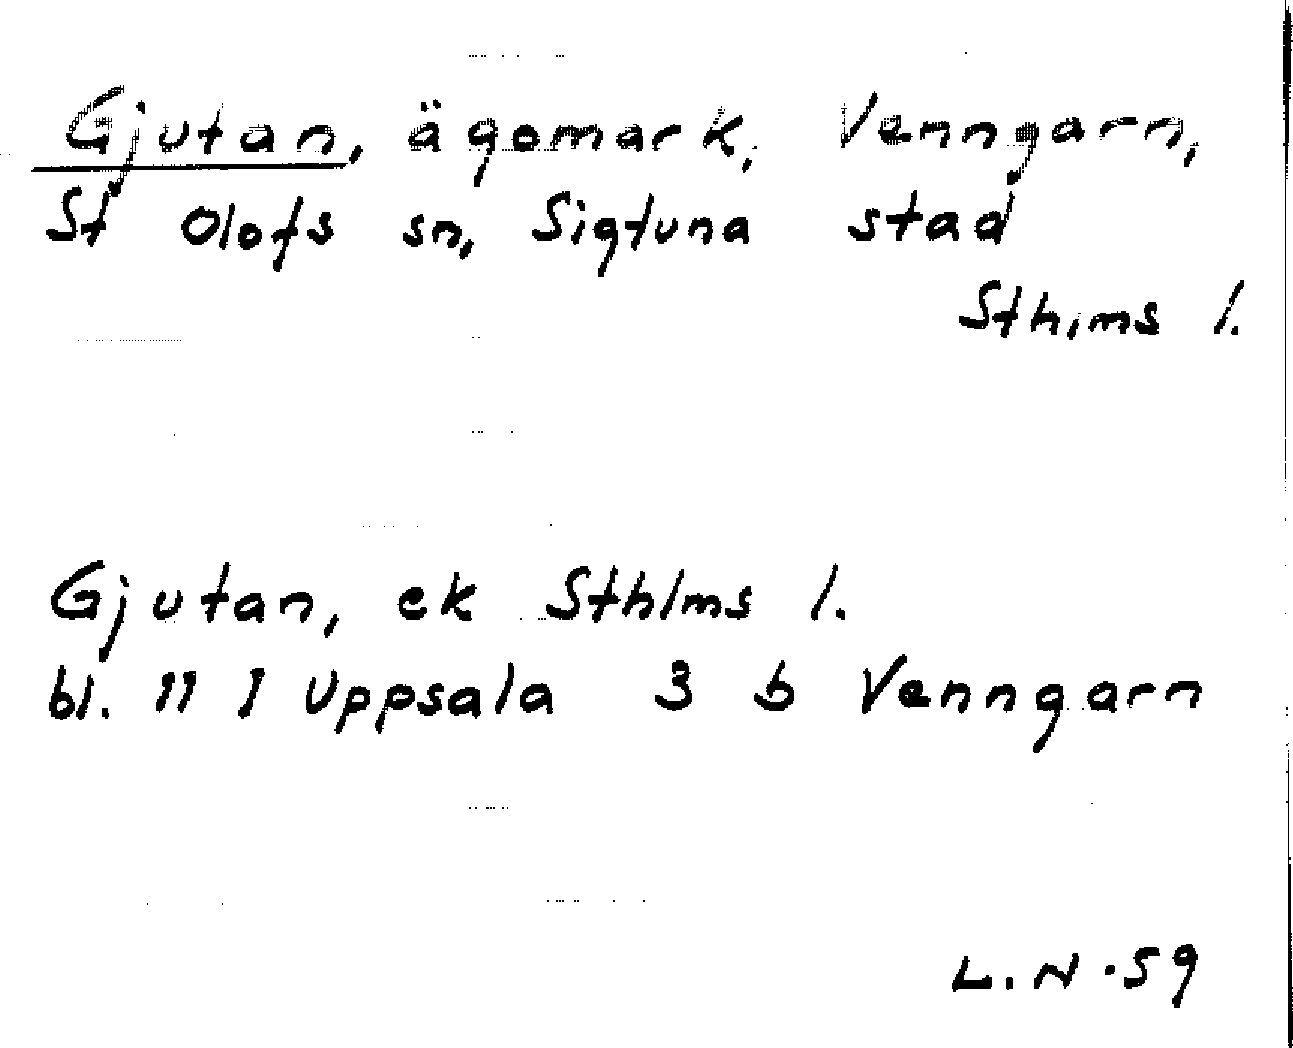 Gjutan, ägomark, Venngarn,
St Olofs sn, Sigtuna stad
Sthlms l.
Gjutan, ek Sthlms l.
bl. 11 I Uppsala 3 b Venngarn
L.N.59